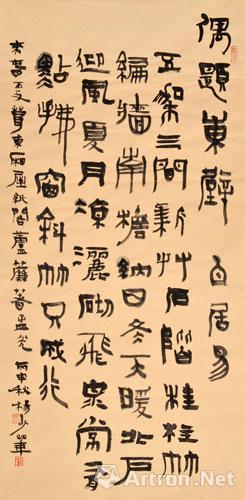 偶題東壁 白居易
五架三間新艸石階桂柱竹
編牆南檐納日冬天暖北戶
迎風夏月涼灑砌飛泉常有
點拂窗斜竹不成行
來春更葺東廂屋紙閣蘆簾著孟光 丙申秋楊少華